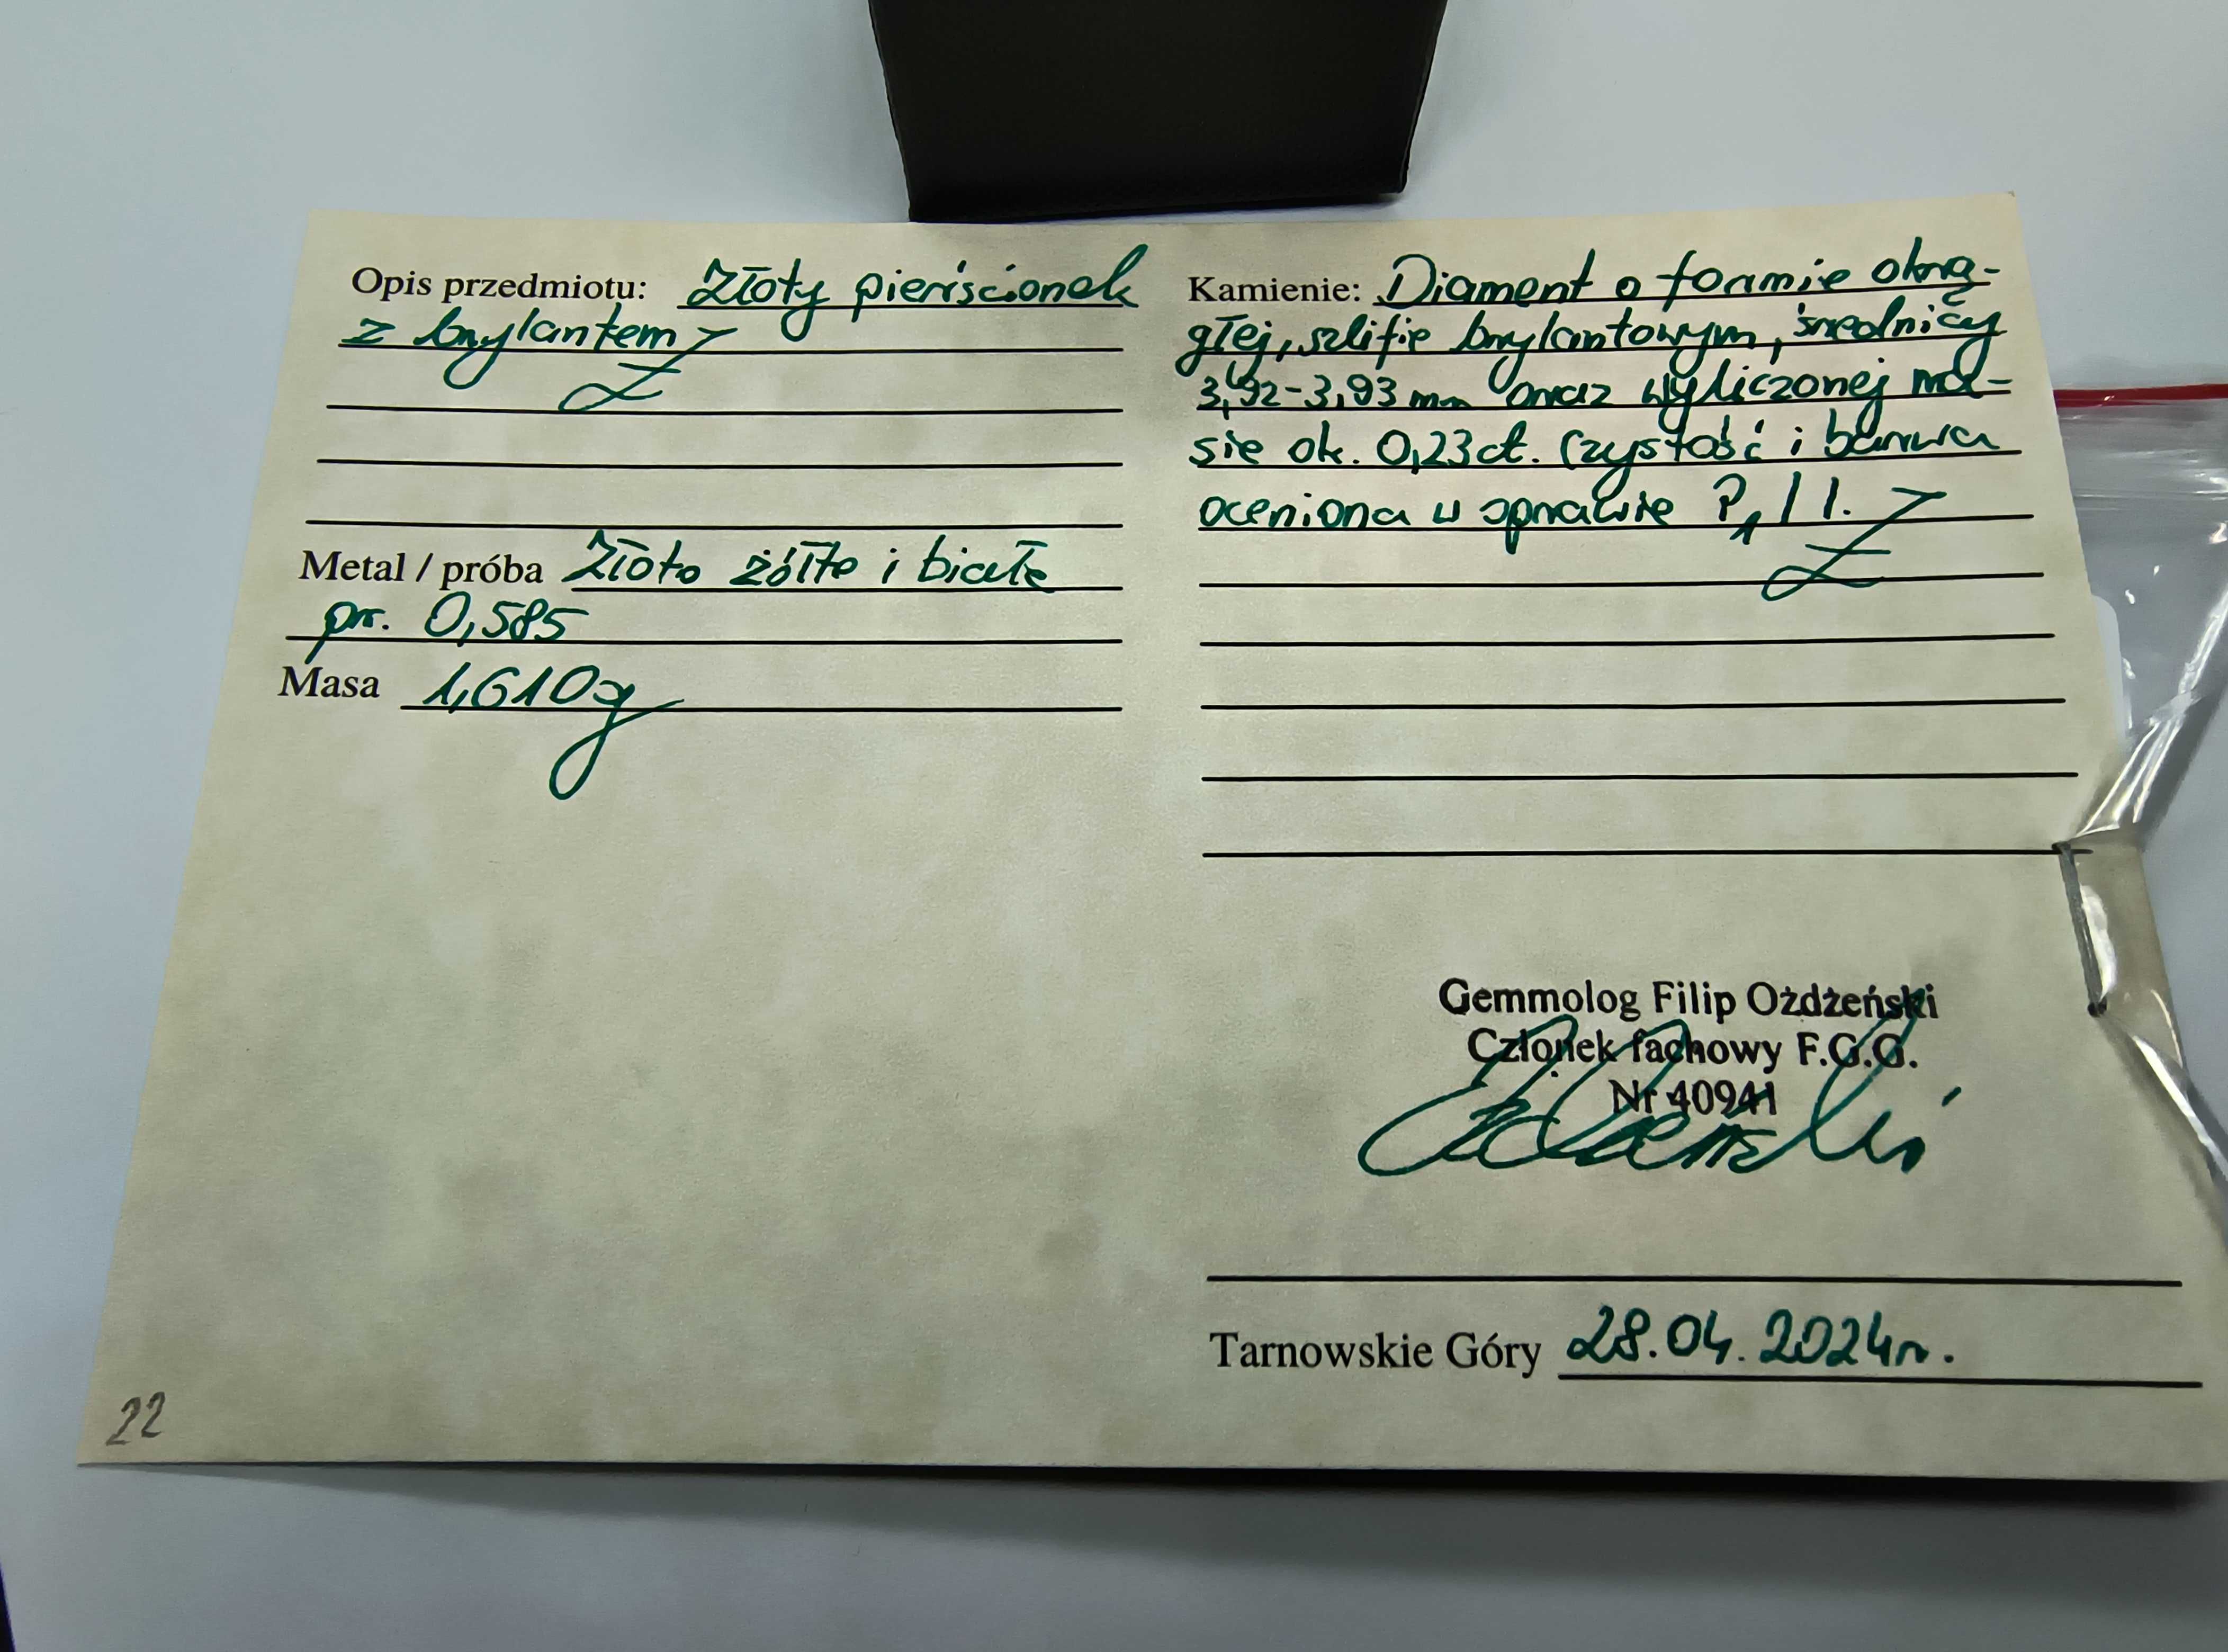 Opis przedmiotu: Złoty pierścionek
z brylantem
Metal / próba Złoto żółte i białe
pr. 0,585
Masa 1,610g
22
Kamienie: Diament o formie okrą-
głej, szlifie brylantowym, średnicy
3,92-3,93 mm oraz wyliczonej ma-
sie ok. 0,23ct. Czystość i barwa
oceniona w oprawie P1 / I.
Gemmolog Filip Ożdżeński
Członek fachowy F.G.G.
Nr 40941
Tarnowskie Góry 28.04.2024r.